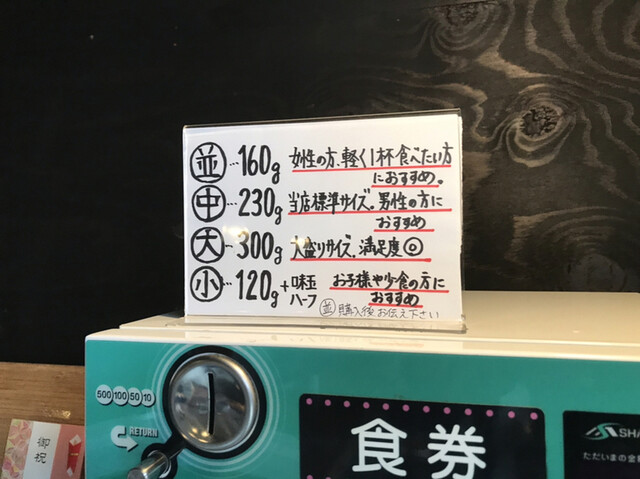 並…160g 女性の方、軽く1杯食べたい方
におすすめ。
中…230g 当店標準サイズ。男性の方に
おすすめ
大…300g 大盛りサイズ。満足度◎
小…120g +味玉ハーフ お子様や少食の方に
おすすめ
並購入後お伝え下さい
500 100 50 10
RETURN
食券
御祝
SHA
ただいまの金